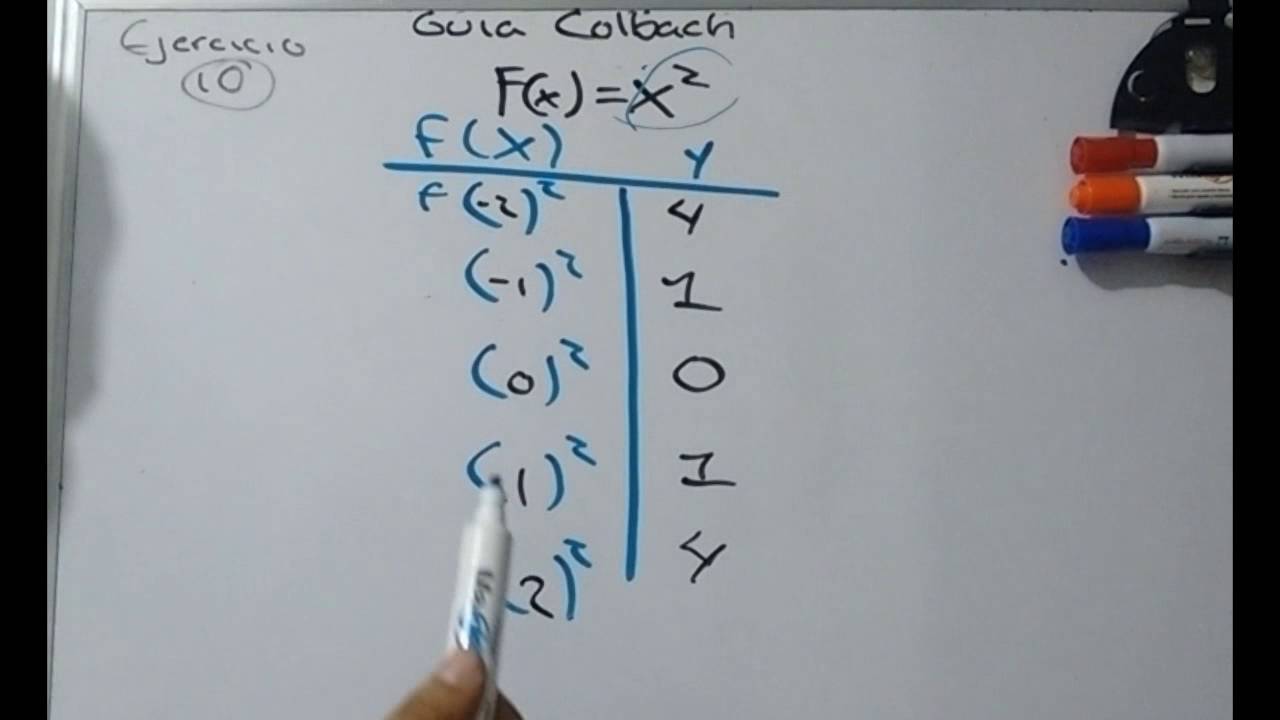 Guia Colbach
Ejercicio
10
F(x)=x²
F(X) Y
F(-2)² 4
(-1)² 1
(0)² 0
(1)² 1
(2)² 4